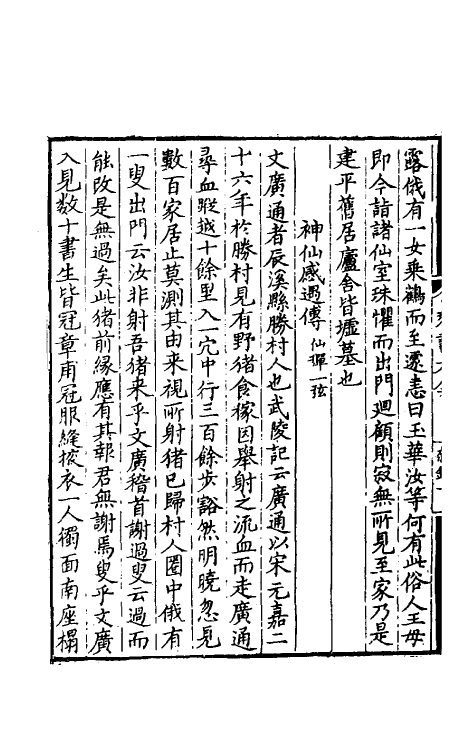 露俄有一女乘鶴而至遽恚曰玉華汝等何有此俗人王母
即令詣諸仙室珠懼而出門迴顧則寂無所見至家乃是
建平舊居廬舍皆墟墓也
神仙感遇傳 仙彈一弦
文廣通者辰溪縣滕村人也武陵記云廣通以宋元嘉二
十六年於滕村見有野猪食稼因舉射之流血而走廣通
尋血蹤越十餘里入一穴中行三百餘步豁然明曉忽見
數百家居止莫測其由来視所射猪已歸村人圈中俄有
一叟出門云汝非射吾猪来乎文廣稽首謝過叟云過而
能改是無過矣此猪前緣應有其報君無謝焉叟乎文廣
入見数十書生皆冠章甫冠服縫掖衣一人獨面南座榻